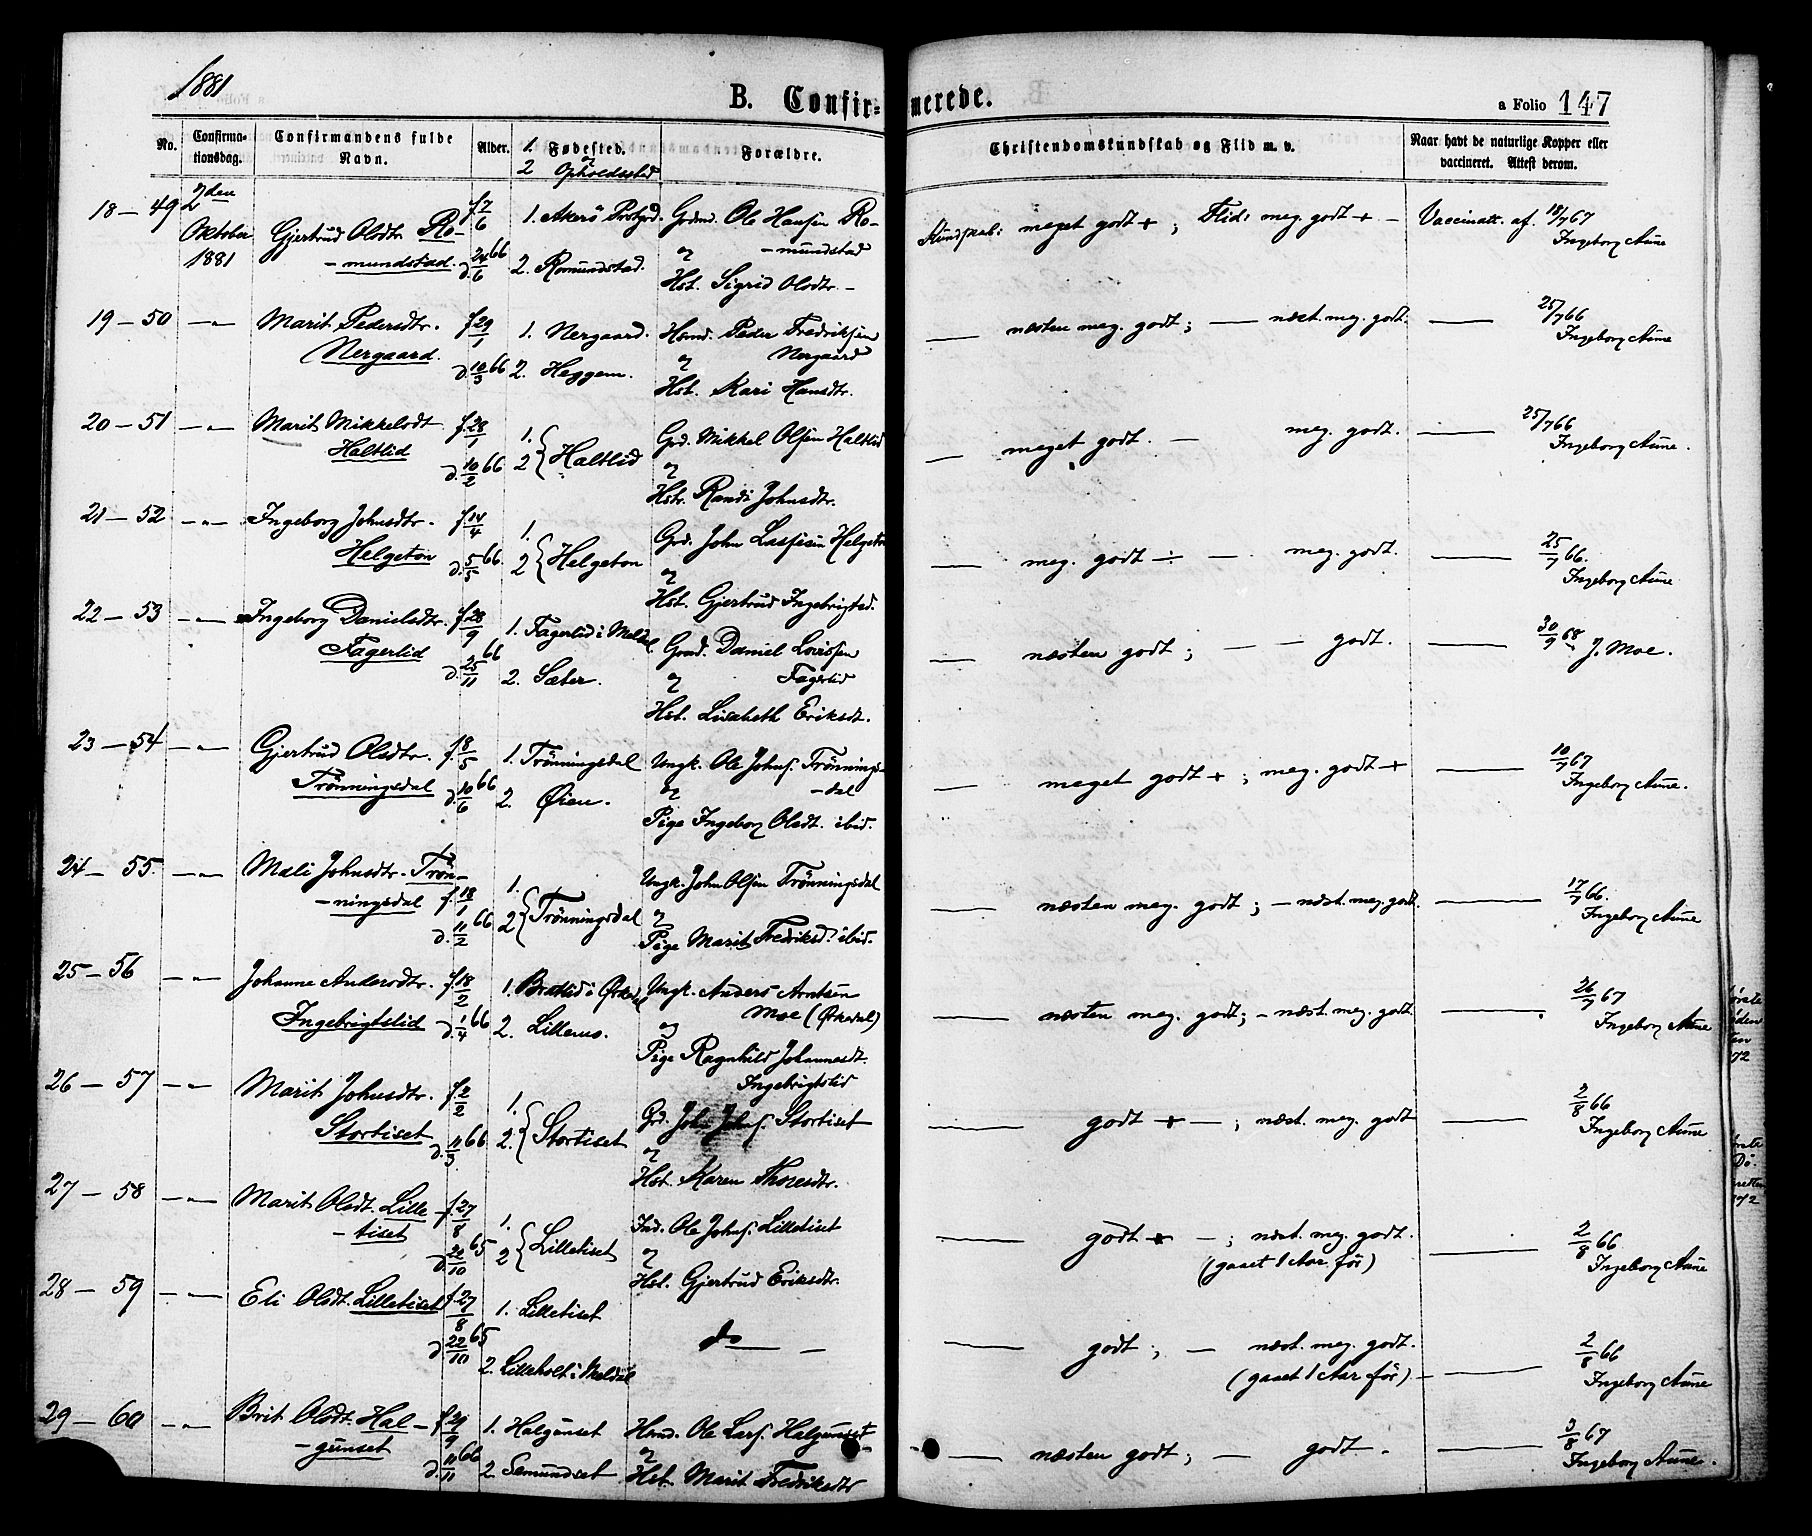 1881
B. Confirmerede.
a Folio 147
No. Confirmationsdag. Confirmandens fulde Navn. Alder. 1. Fødested. og 2 Opholdssted Forældre. Christendomskundskab og Flid m. v. Naar havt de naturlige Kopper eller vaccineret. Attest derom.
18 — 49 2den Oktober 1881 Gjertrud Olsdtr. Ro- f. 7/6 1. Akerö Prstgd. Grdmd. Ole Hansen Ro- Kundskab: meget godt + ; Flid: meg. godt + — Vaccinatt. af. 18/7 67
- mundstad. d. 24/6 66 2. Romundstad. og - mundstad Ingeborg Aune
Hst. Sigrid Olsdtr. —
19 — 50 — „ — Marit Pedersdtr. f. 29/1 1. Nergaard. Hsmd. Peder Fredriksen — næsten meg. godt; — næst. meg. godt. — 25/7 66
Nergaard. d. 10/3 66 2. Heggem. og Nergaard Ingeborg Aune
Hst. Kari Hansdtr.
20 — 51 — „ — Marit Mikkelsdt. f. 28/1 1. Grd. Mikkel Olsen Haltlid — meget godt. — meg. godt. — 25/7 66
Haltlid d. 10/2 66 2 { Haltlid og Ingeborg Aune.
Hstr. Randi Johnsdtr.
21 — 52 — „ — Ingeborg Johnsdtr. f. 14/4 1. Grd. John Lassesen Helgeton — meg. godt ÷ — meg. godt. — 25/7 66.
Helgeton d. 5/5 66. 2 { Helgeton og Ingeborg Aune
Hst. Gjertrud Ingebrigtsd.
22 — 53 — „ — Ingeborg Danielsdtr. f. 28/9 1. Fagerlid i Meldal Grmd. Daniel Lovissen — næsten godt; — — godt. — 30/9 68
Fagerlid d. 25/11 66 2. Sæter. og Fagerlid J. Moe.
Hst. Lisabeth Eriksdt.
23 — 54 — „ — Gjertrud Olsdtr. f. 8/5 1. Trönningsdal Ungk. Ole Johns. Trönnings- — meget godt + ; meg. godt + — 10/7 67
Trönningsdal d. 10/6 66 2. Øien. og - dal Ingeborg Aune.
Pige Ingeborg Olsdt. ibid.
24 — 55. — „ — Mali Johnsdtr. Trön- 1. Ungk. John Olsen Trönningsdal — næsten meg. godt; — næst. meg. godt. — 17/7 66.
- ningsdal f. 18/1 d. 11/2 66 2 { Trönningsdal og Ingeborg Aune
Pige Marit Fredriksd. ibid.
25 — 56 — „ — Johanne Andersdtr. f. 18/2 1. Bratlid i Ørkedal Ungk. Anders Arntsen — næsten meg. godt; — næst. meg. godt. — 26/7 67
Ingebrigtslid d. 1/4 66 2. Lillemo. Moe (Ørkedal) Ingeborg Aune
og
Pige Ragnhild Johannesdt.
Ingebrigtslid
26 — 57 — „ — Marit Johnsdtr. f. 2/2 1. Grd. John Johns. Stortiset — godt + — ; næst. meg. godt — 2/8 66
Stortiset d. 11/3 66 2. { Stortiset og Ingeborg Aune
Hst. Karen Thoresdtr.
27 — 58 — „ — Marit Olsdt. Lille- f. 27/8 1. Ind. Ole Johns. Lilletiset — godt + — ; næst. meg. godt. — 2/8 66
- tiset d. 22/10 65 2 { Lilletiset og (gaaet 1 Aar för) Ingeborg Aune
Hst. Gjertrud Eriksdtr.
28 — 59 — „ — Eli Olsdt. Lilletiset f. 27/8 1. Lilletiset do — godt ; — næst. meg. godt. — 2/8 66
d. 22/10 65 2. Lilleholt i Meldal (gaaet 1 Aar för) — Ingeborg Aune
29 — 60 — „ — Brit Olsdt. Hal- f. 29/9 1. Halgunset Hsmd. Ole Lars. Halgunset — næsten godt; — godt. — 3/8 67
- gunset d. 11/11 66 2. Semundset og Ingeborg Aune.
Hst. Marit Fredriksdtr